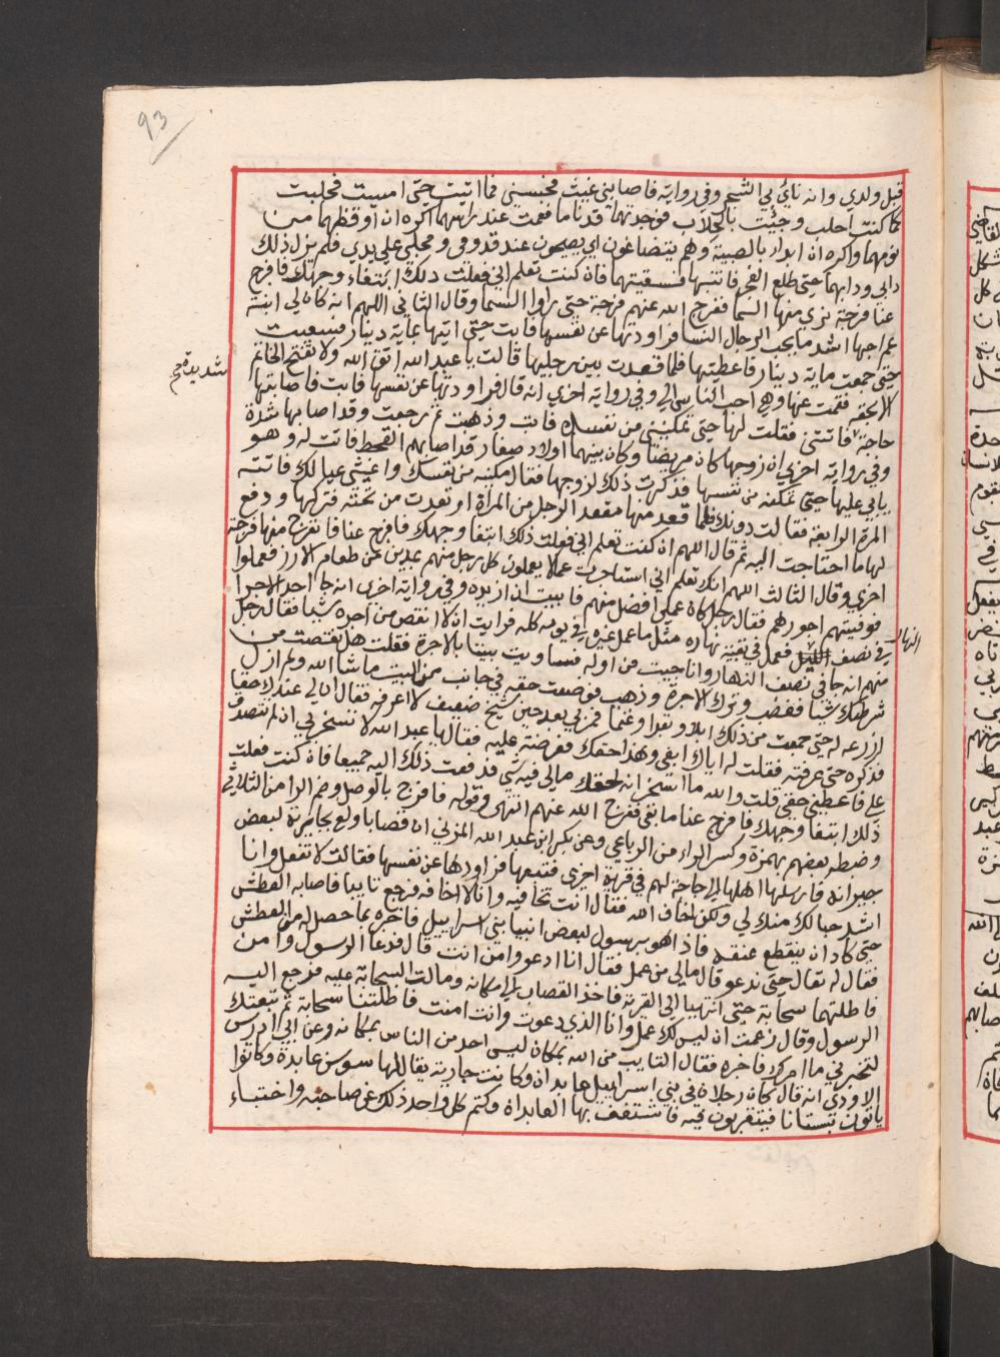 93
قبل ولدي وانه ناي بي الشجر وفي رواية فاصابني غيث فحبسني فما اتيت حتى امسيت فحلبت
كما كنت احلب وجيت بالحلاب فوجدتهما قد ناما فقمت عند راسهما اكره ان اوقظهما من
نومهما واكره ان ابدا بالصبية وهم يتضاغون اي يصيحون عند قدومي ومحلبي على يدي فلم يزل ذلك
دابي ودابهما حتى طلع الفجر فانتبها فسقيتهما فان كنت تعلم اني فعلت ذلك ابتغاء وجهك فافرج
عنا فرجة نري منها السما ففرج الله عنهم فرجة حتى راوا السما وقال الثاني اللهم انه كان لي ابنة
عم احبها اشد ما يحب الرجال النسا فراودتها عن نفسها فابت حتى اتيها بماية دينار فسعيت
حتى جمعت ماية دينار فاعطتها فلما قعدت بين رجليها قالت يا عبد الله اتق الله ولا تفتح الخاتم
الا بحقه فقمت عنها وهي احب الناس الي وفي رواية اخري انه قال فراودتها عن نفسها فابت فاصابتها
شديدة صح
حاجة فاتتني فقلت لها حتى تمكنيني من نفسك فابت وذهبت ثم رجعت وقد اصابها شدة
وفي رواية اخري ان زوجها كان مريضا وكان بينهما اولاد صغار قد اصابهم القحط فاتت له وهو
يابي عليها حتى تمكنه من نفسها فذكرت ذلك لزوجها فقال مكنيه من نفسك واغيثي عيالك فاتته
المرة الرابعة فقالت دونك فلما قعد منها مقعد الرجل من المراة ارتعدت من تحته فتركها ودفع
لها ما احتاجت اليه ثم قال اللهم ان كنت تعلم اني فعلت ذلك ابتغا وجهك فافرج عنا فانفرج منها فرجة
اخري وقال الثالث اللهم انك تعلم اني استاجرت عمالا يعملون كل رجل منهم بمدين من طعام الارز فعملوا
فوفيتهم اجورهم فقال رجل كان عملي افضل منهم فابيت ان ازيده وفي رواية اخري انه جا احد الاجرا
في نصف الليل فعمل في بقية نهاره مثل ما عمل غيره في يومه كله فرايت ان لا انقص من اجره شيا فقال رجل
النهار
منهم انه جا في نصف النهار وانا جيت من اوله فساويت بيننا بالاجرة فقلت هل نقصت من
شرطك شيا فغضب وترك الاجرة وذهب فوضعت حقه في جانب من البيت ما شا الله ولم ازل
ازرعه له حتى جمعت من ذلك ابلا وبقرا وغنما فمر بي بعد حين شيخ ضعيف لا اعرفه فقال ان لي عندك حقا
فذكره حتى عرفته فقلت له اياك ابغي وهذا حقك فعرضته عليه فقال يا عبد الله لا تسخر بي اذ لم تتصدق
علي فاعطيني حقي قلت والله ما اسخر انه لحقك مالي فيه شي فدفعت ذلك اليه جميعا فان كنت فعلت
ذلك ابتغا وجهك فافرج عنا ما بقي ففرج الله عنهم انتهى وقوله فافرج بالوصل وضم الرا من الثلاثي
وضبطه بعضهم بهمزة وكسر الراء من الرباعي وعن بكر ابن عبد الله المزني ان قصابا ولع بجارية لبعض
جيرانه فارسلها اهلها الى حاجة لهم في قرية اخري فتبعها فراودها عن نفسها فقالت لا تفعل وانا
اشد حبا لك منك لي ولكن اخاف الله فقال انت تخافيه وانا لا اخافه فرجع تايبا فاصابه العطش
حتى كاد ان ينقطع عنقه فاذا هو برسول لبعض انبيا بني اسراييل فاخبره بما حصل له من العطش
فقال له تعال حتى ندعو قال مالي من عمل فقال انا ادعو وامن انت قال فدعا الرسول وامن
فاظلتهما سحابة حتى انتهيا الى القرية فاخذ القصاب الى مكانه ومالت السحابة عليه فرجع اليه
الرسول وقال زعمت ان ليس لك عمل وانا الذي دعوت وانت امنت فاظلتنا سحابة ثم تبعتك
لتخبرني ما امرك فاخبره فقال التايب من الله بمكان ليس احد من الناس بمكانه وعن ابي ادريس
الاودي انه قال كان رجلان في بني اسراييل عابدان وكانت جارية يقال لها سوسن عابدة وكانوا
ياتون بستانا فيتقربون فيه فاشتغف بها العابدان وكتم كل واحد ذلك عن صاحبه واختباء